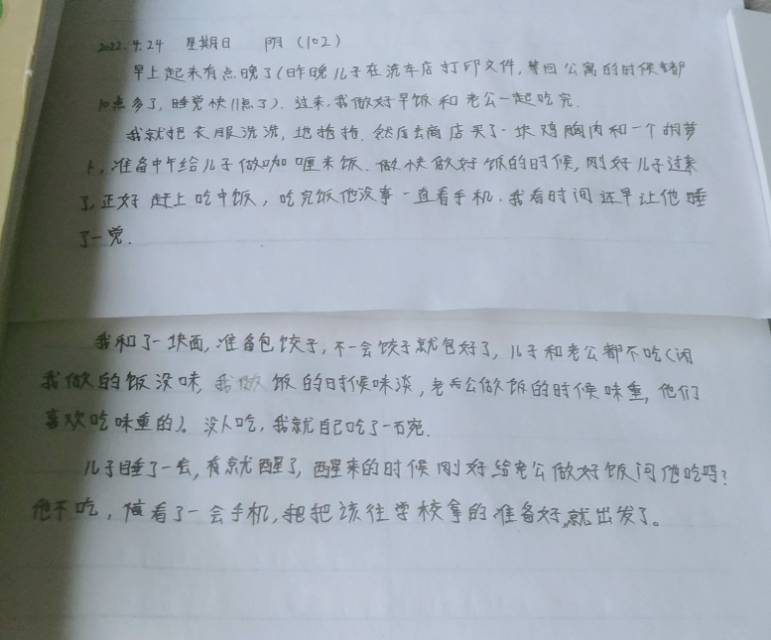 2022.4.24 星期日 阴（102）
早上起来有点晚了（昨晚儿子在洗车店打印文件，等回公寓的时候都
10点多了，睡觉快11点了）.过来,我做好早饭和老公一起吃完.
我就把衣服洗洗,地拖拖.然后去商店买了一块鸡胸肉和一个胡萝
卜,准备中午给儿子做咖喱米饭.做快做好饭的时候,刚好儿子过来
了,正好赶上吃中饭,吃完饭他没事一直看手机.我看时间还早让他睡
了一觉.
我和了一块面,准备包饺子,不一会饺子就包好了,儿子和老公都不吃（闲
我做的饭没味,我做饭的时候味淡,老公做饭的时候味重,他们
喜欢吃味重的）.没人吃,我就自己吃了一碗.
儿子睡了一会,就醒了,醒来的时候刚好给老公做好饭问他吃吗?
他不吃,看了一会手机,把该往学校拿的准备好,就出发了。